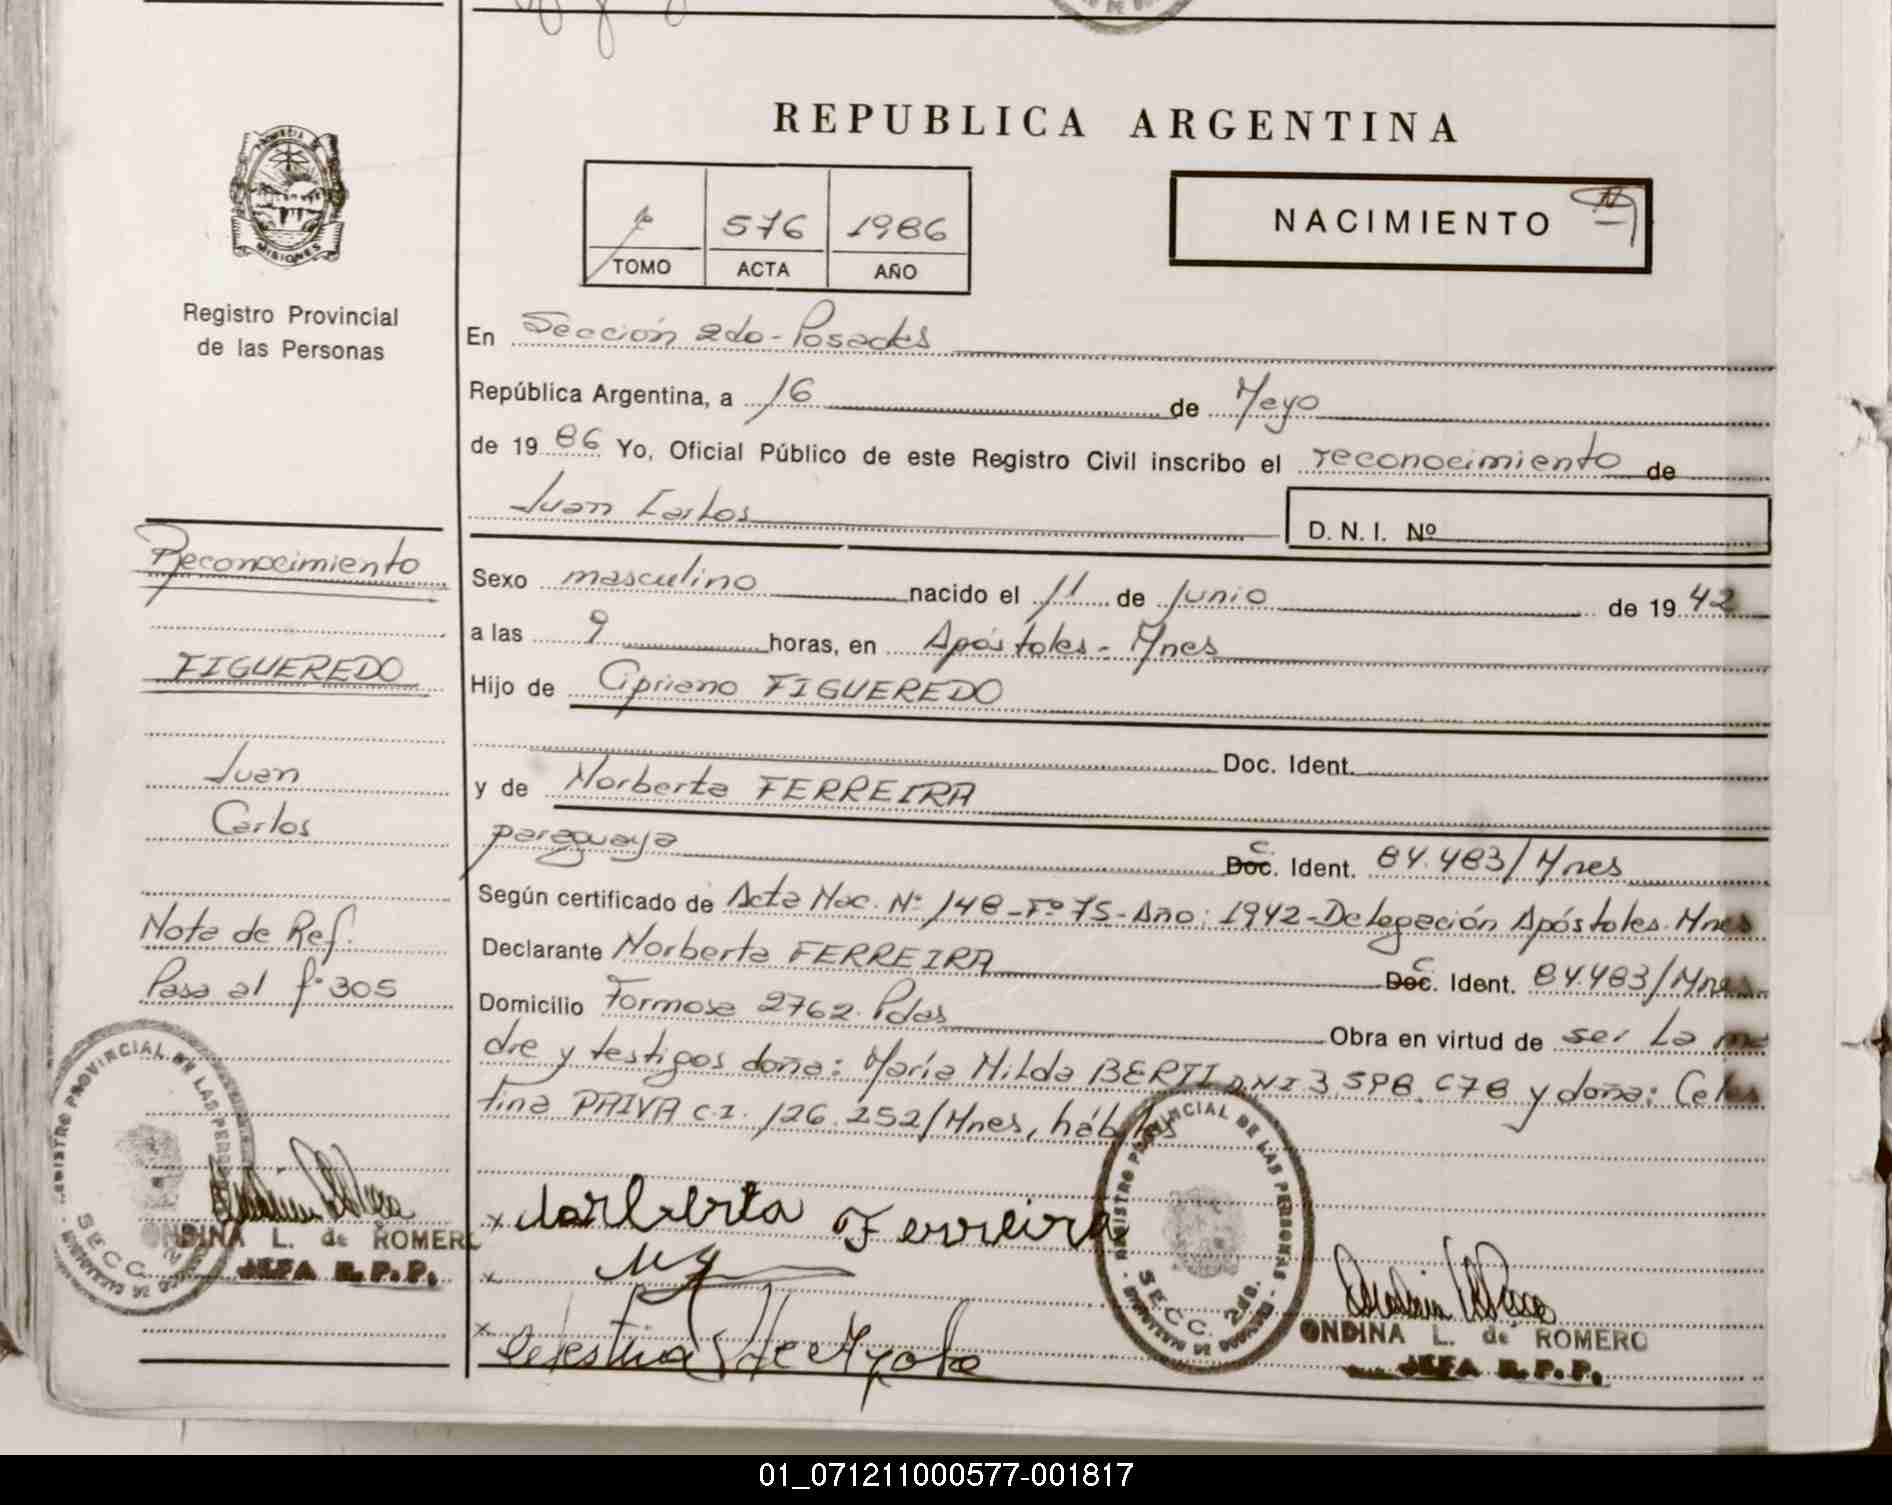 REPUBLICA ARGENTINA
PROVINCIA DE
MISIONES
576 1986
TOMO ACTA AÑO
NACIMIENTO
Registro Provincial
de las Personas
En Sección 2do - Posadas
República Argentina, a 16 de Mayo
de 19 86 Yo, Oficial Público de este Registro Civil inscribo el reconocimiento de
Juan Carlos D. N. I. Nº
Sexo masculino nacido el 11 de Junio de 19 42
a las 9 horas, en Apóstoles - Mnes
Hijo de Cipriano FIGUEREDO
Doc. Ident.
y de Norberta FERREIRA
paraguaya C. Doc. Ident. 84.483/Mnes
Según certificado de Acta Nac. Nº 148 - Fº 75 - Año: 1942 - Delegación Apóstoles. Mnes
Declarante Norberta FERREIRA C. Doc. Ident. 84.483/Mnes.
Domicilio Formosa 2762. Pdas Obra en virtud de ser La ma
dre y testigos doña: María Hilda BERTI DNI 3.598.678 y doña: Celes
tina PAIVA C.I. 126.252/Mnes, hábiles
Reconocimiento
FIGUEREDO
Juan
Carlos
Nota de Ref.
Pasa al fº 305
REGISTRO PROVINCIAL DE LAS PERSONAS
SECC.
ONDINA L. de ROMERO
JEFA R.P.P.
x Norberta Ferreira
x
x Celestina de Ayala
REGISTRO PROVINCIAL DE LAS PERSONAS
SECC. 2da.
ONDINA L. de ROMERO
JEFA R.P.P.
01_071211000577-001817